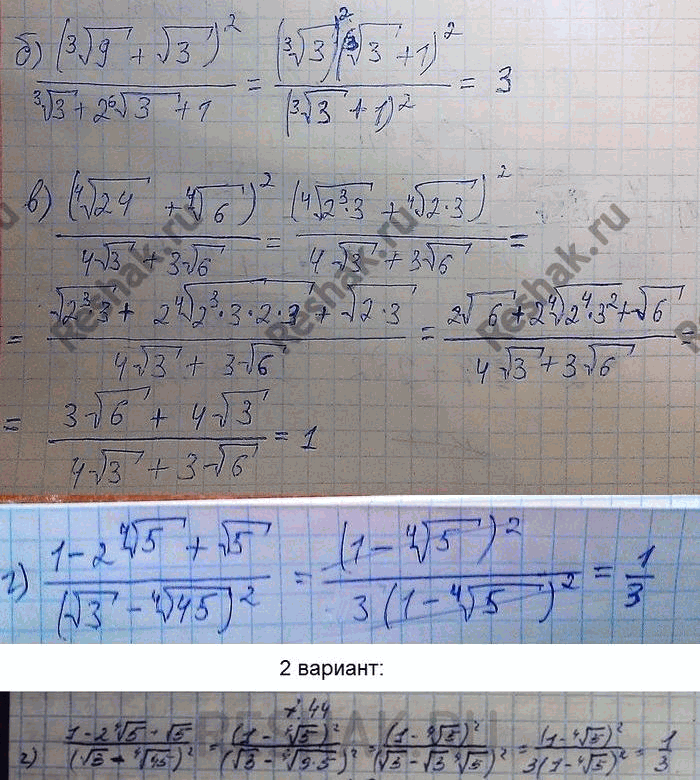 б) (³√9 + √3)² / (³√3 + 2⁶√3 + 1) = (³√3)²(⁶√3 + 1)² / (³√3 + 1)² = 3
в) (⁴√24 + ⁴√6)² / (4√3 + 3√6) = (⁴√(2³·3) + ⁴√(2·3))² / (4√3 + 3√6) =
= (√(2³·3) + 2⁴√(2³·3·2·3) + √(2·3)) / (4√3 + 3√6) = (2√6 + 2⁴√(2⁴·3²) + √6) / (4√3 + 3√6) =
= (3√6 + 4√3) / (4√3 + 3√6) = 1
г) (1 - 2⁴√5 + √5) / (√3 - ⁴√45)² = (1 - ⁴√5)² / 3(1 - ⁴√5)² = 1/3
2 вариант:
7.44
г) (1 - 2⁴√5 + √5) / (√3 - ⁴√45)² = (1 - ⁴√5)² / (√3 - ⁴√(9·5))² = (1 - ⁴√5)² / (√3 - √3 ⁴√5)² = (1 - ⁴√5)² / 3(1 - ⁴√5)² = 1/3